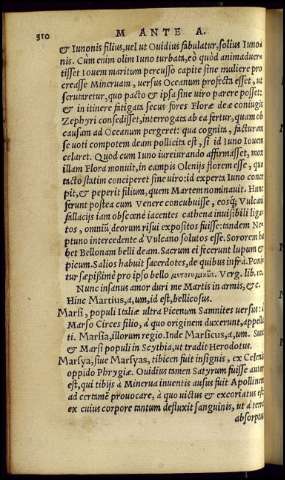 310 M ANTE A.
& Iunonis filius, uel ut Ouidius fabulatur, solius Iuno
nis. Cum enim olim Iuno turbata, eò quòd animaduer
tisset Iouem maritum percusso capite sine muliere pro
creasse Mineruam, uersus Oceanum profecta esset, ut
scrutaretur, quo pacto & ipsa sine uiro parere posset:
& in itinere fatigata secus fores Floræ deæ coniugis
Zephyri consedisset, interrogata ab ea fertur, quam ob
causam ad Oceanum pergeret: qua cognita, facturam
se uoti compotem deam pollicita est, si id Iuno Iouem
celaret. Quod cum Iuno iureiurando affirmasset, mon
illam Flora monuit, in campis Olenijs florem esse, quo
tacto statim conciperet sine uiro: id experta Iuno conce
pit, & peperit filium, quem Martem nominauit. Hunc
ferunt postea cum Venere concubuisse, eosq; Vulcani
fallacijs iam obscœnè iacentes cathena inuisibili liga
tos, omniū, deorum risui expositos fuisse: tandem Ne
ptuno intercedente à Vulcano solutos esse. Sororem ha
bet Bellonam belli deam. Sacrum ei fecerunt lupum &
picum. Salios habuit sacerdotes, de quibus infrà. Poni
tur sæpissimè pro ipso bello Verg. lib. 10.
Nunc insanus amor duri me Martis in armis, &c.
Hinc Martius, a, um, id est, bellicosus.
Marsi, populi Italiæ ultra Picenum Samnites uersus: à
Marso Circes filio, à quo originem duxerunt, appella
ti. Marsia, illorum regio. Inde Marsicus, a, um. Sunt
& Marsi populi in Scythia, ut tradit Herodotus.
Marsya, siue Marsyas, tibicen fuit insignis, ex Celenis
oppido Phrygiæ. Ouidius tamen Satyrum fuisse autor
est, qui tibijs à Minerua inuentis ausus fuit Apollinem
ad certamē prouocare, à quo uictus & excoriatus est:
ex cuius corpore tantum defluxit sanguinis, ut à terra
absorptus